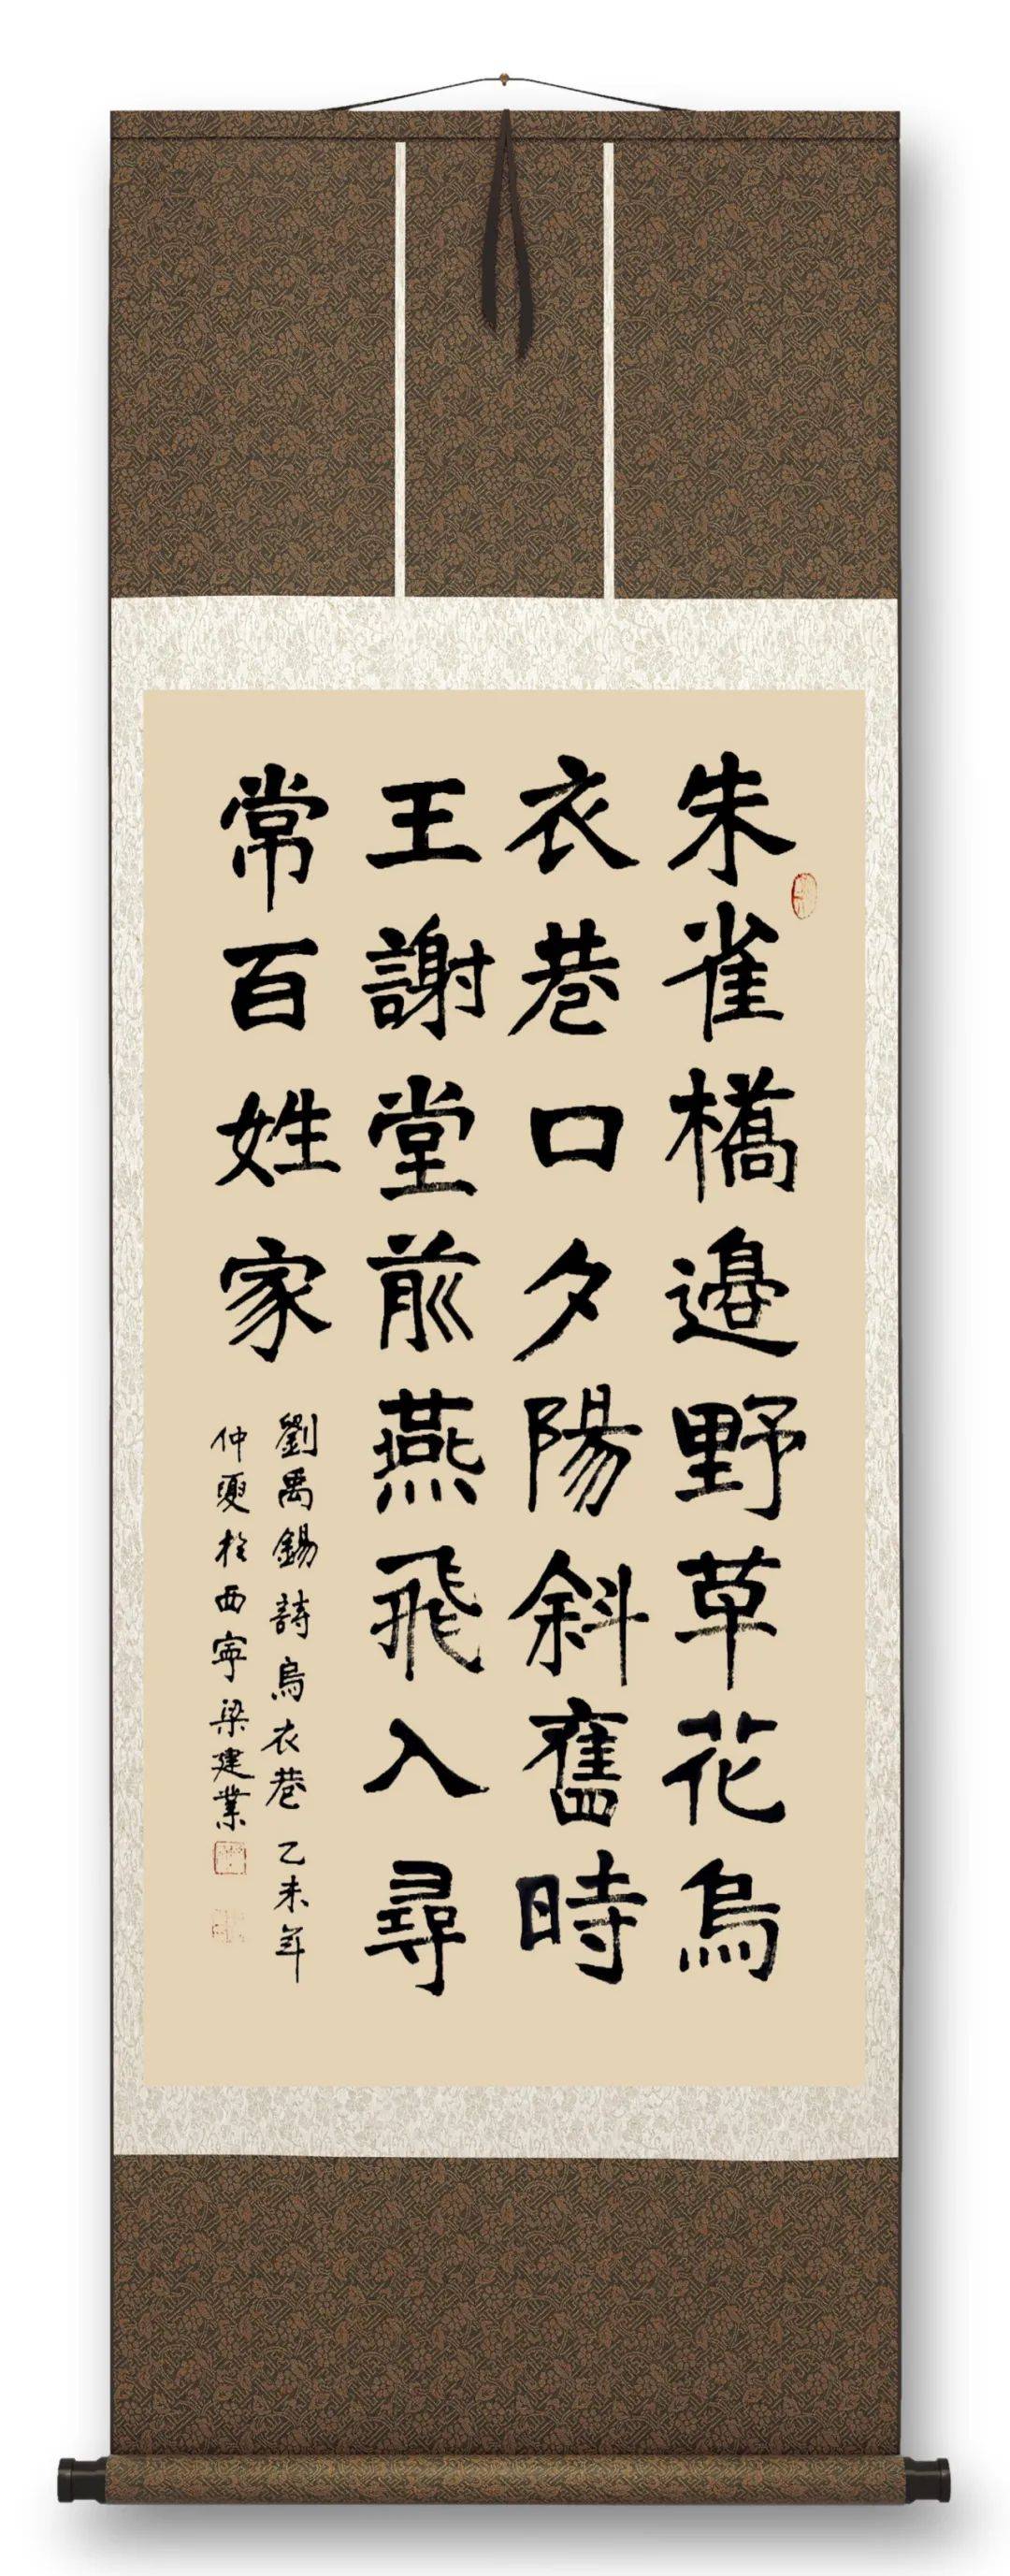 朱雀橋邉野草花烏
衣巷口夕陽斜舊時
王謝堂前燕飛入尋
常百姓家
劉禹錫詩烏衣巷乙未年
仲夏於西寧梁建業